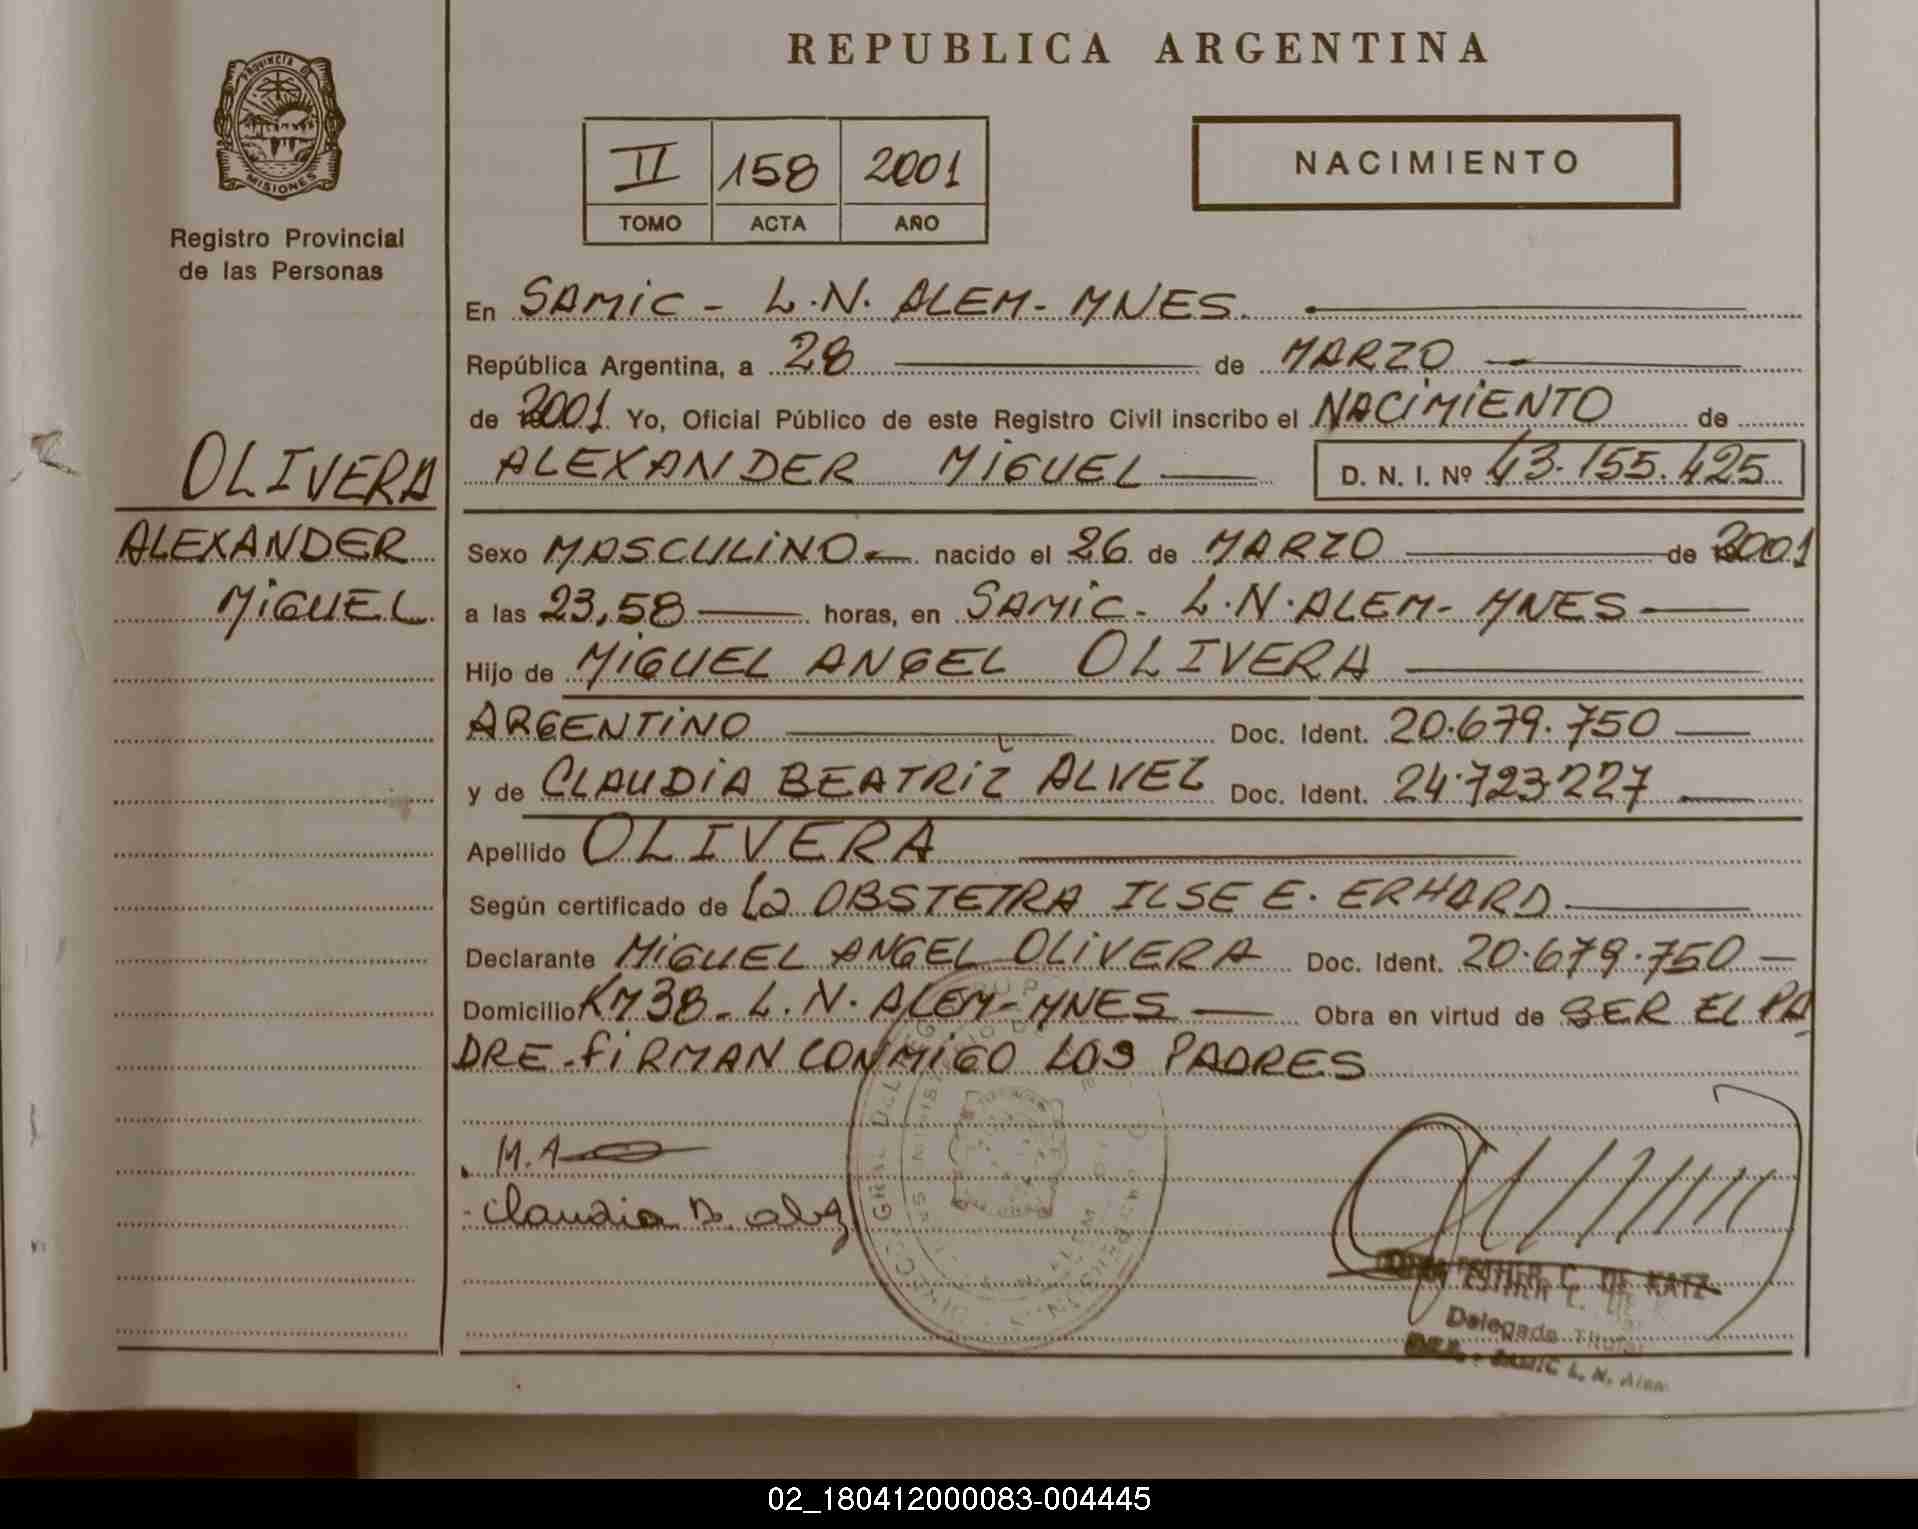 REPUBLICA ARGENTINA
PROVINCIA DE
MISIONES
Registro Provincial
de las Personas
II 158 2001
TOMO ACTA AÑO
NACIMIENTO
En SAMIC - L.N. ALEM - MNES.
República Argentina, a 28 de MARZO
de 2001 Yo, Oficial Público de este Registro Civil inscribo el NACIMIENTO de
ALEXANDER MIGUEL D. N. I. Nº 43.155.425
OLIVERA
ALEXANDER
MIGUEL
Sexo MASCULINO nacido el 26 de MARZO de 2001
a las 23,58 horas, en SAMIC - L.N. ALEM - MNES
Hijo de MIGUEL ANGEL OLIVERA
ARGENTINO Doc. Ident. 20.679.750
y de CLAUDIA BEATRIZ ALVEZ Doc. Ident. 24.723.227
Apellido OLIVERA
Según certificado de La OBSTETRA ILSE E. ERHARD
Declarante MIGUEL ANGEL OLIVERA Doc. Ident. 20.679.750
Domicilio KM 38 - L.N. ALEM - MNES Obra en virtud de SER EL PA
DRE - FIRMAN CONMIGO LOS PADRES
M.A
Claudia B.
ESTHER C. DE KATZ
Delegada Titular
SAMIC L. N. Alem
02_180412000083-004445